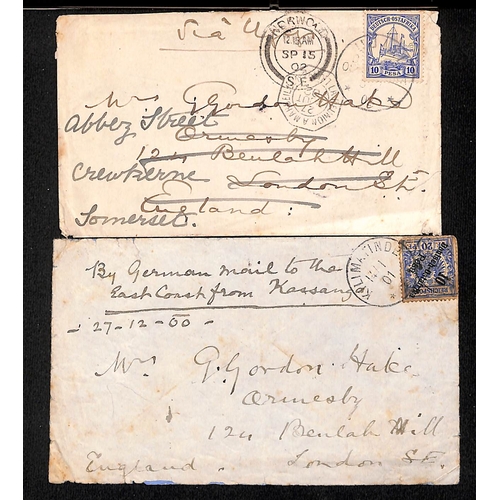 Via
NORWOOD
12.15AM
SP 15
02
S.E.
DEUTSCH-OSTAFRIKA
10 PESA 10
Mrs Gordon Hake
Abbey Street
Ormesby
124 Beulah Hill
Crewkerne
London S.E.
England
Somerset.
By German mail to the
East Coast from Kassanga
27-12-00
KILIMATINDE
01
Mrs G. Gordon Hake
Ormesby
124 Beulah Hill
London S.E.
England